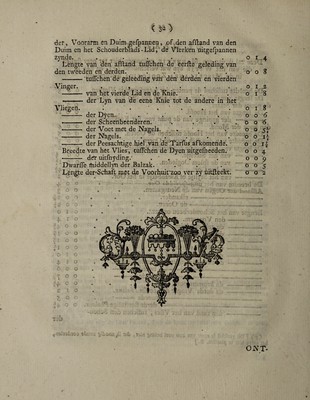 ( 32 )
der, Voorarm en Duim gespannen, of den afstand van den
Duim en het Schouderblads-Lid, de Vlerken uitgespannen
zynde. 0 1 4
Lengte van den afstand tusschen de eerste geleding van
den tweeden en derden. 0 0 8
—— tusschen de geleeding van den derden en vierden
Vinger. 0 1 2
—— van het vierde Lid en de Knie. 0 1 8
—— der Lyn van de eene Knie tot de andere in het
Vliegen. 0 1 8
—— der Dyen. 0 0 6
—— der Scheenbeenderen. 0 0 6
—— der Voet met de Nagels. 0 0
—— der Nagels. 0 0
—— der Peesachtige hiel van de Tarsus afkomende. 0
Breedte van het Vlies, tusschen de Dyen uitgebreeden. 0 0 4
—— der uitsnyding. 0 0 9
Dwarsse middellyn der Balzak. 0 0 5
Lengte der Schaft met de Voorhuit zoo ver zy uitsteekt. 0 0 2
ONT-